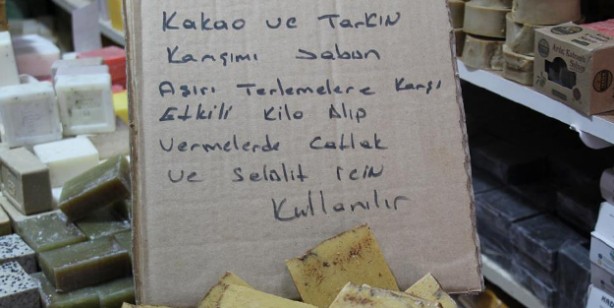 Kakao ve Tarkın
Karışımı Sabun
Aşırı Terlemelere Karşı
Etkili Kilo Alıp
Vermelerde Catlak
ve Selolit icin
Kullanılır